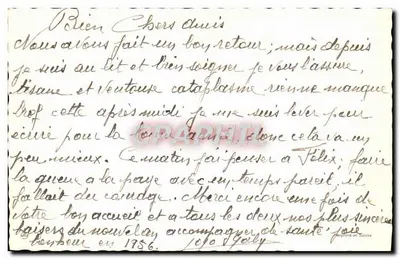 Bien Chers amis
Nous avons fait un bon retour; mais depuis
je suis au lit et bien soigner je vous l'assure,
tisane et ventouse cataplasme rienne manque
Brof cette après midi je me suis lever pour
écrire pour la bonne année donc cela va un
peu mieux. Ce matin j'ai penser a Félix, faire
la queue a la paye avec un temps pareil, il
fallait du courage. Merci encore une fois de
votre bon accueil et a tous les deux nos plus sincères
baisers du nouvel an accompagner de santé joie
bonheur en 1956. Gaby